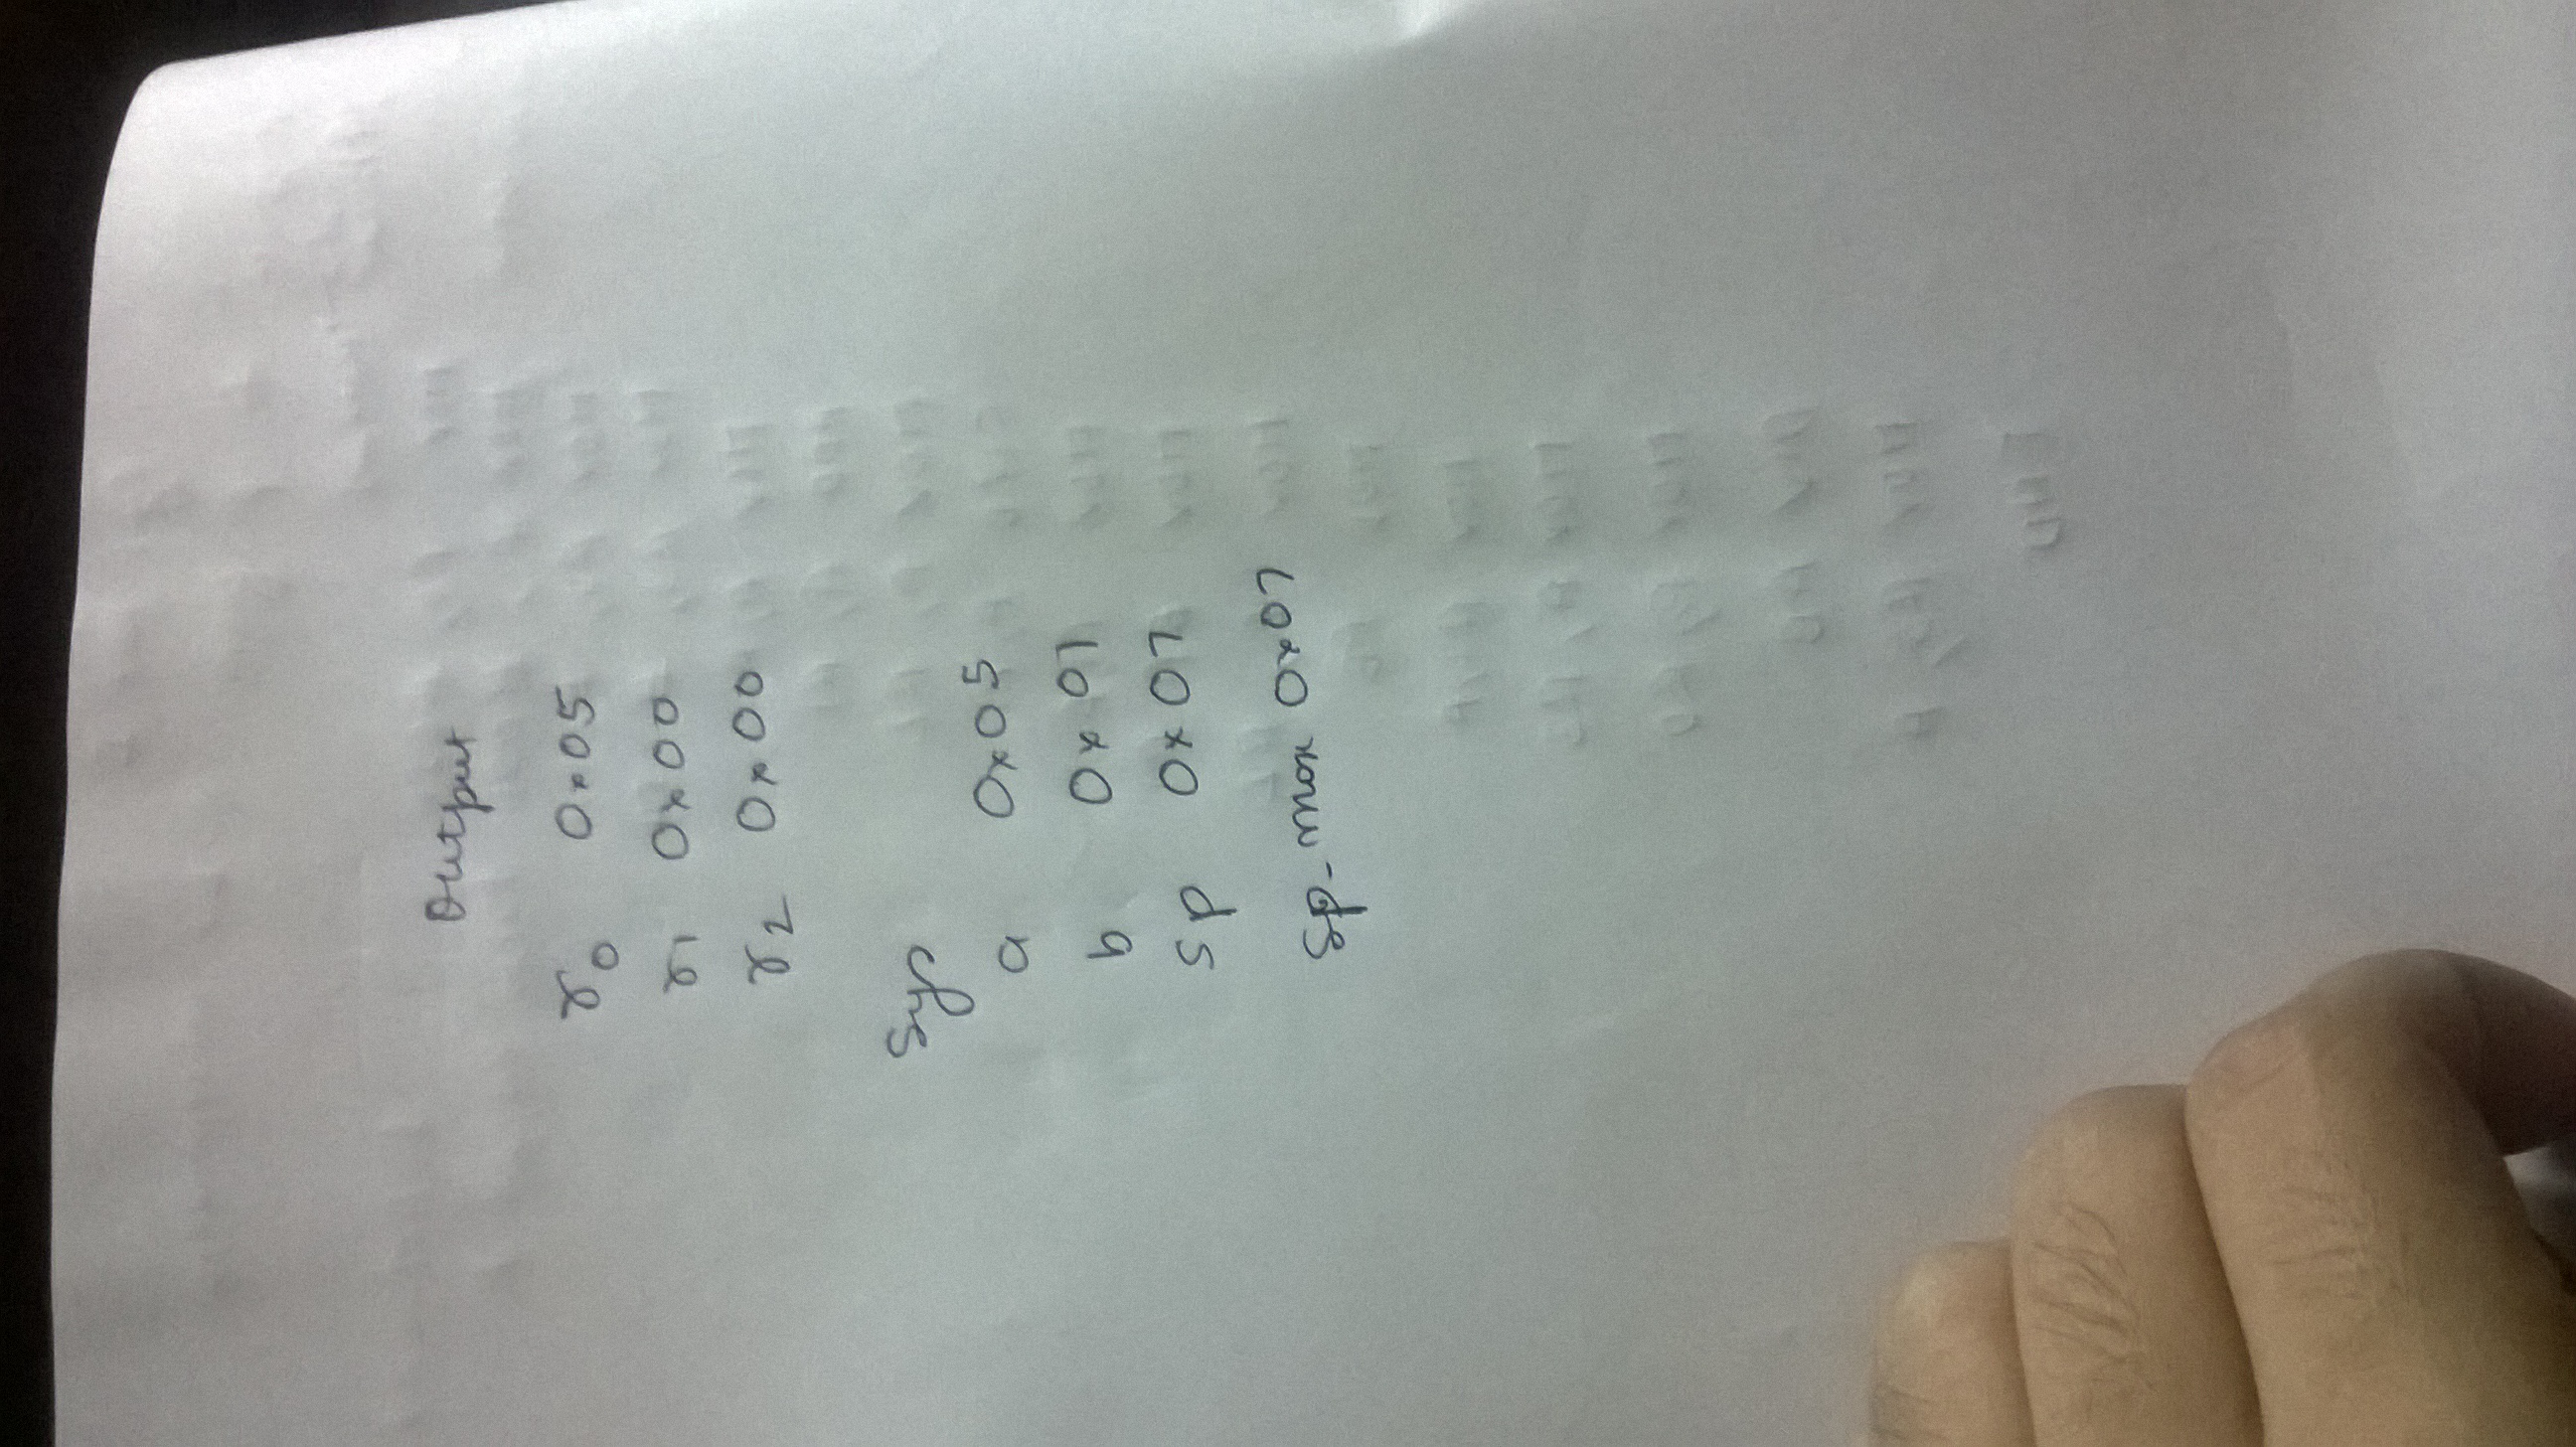 Output
r0 0x05
r1 0x00
r2 0x00
Sys
a 0x05
b 0x01
SP 0x07
Sp-max 0x07